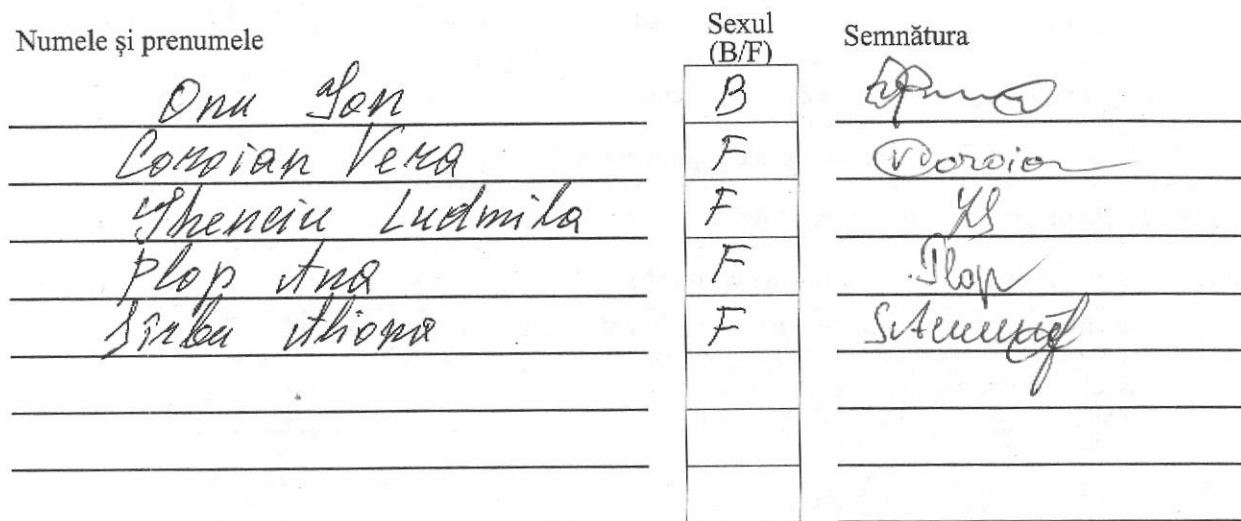 Numele și prenumele Sexul (B/F) Semnătura
Onu Ion B
Coroian Vera F VCoroian
Ludmila F
Plop Ana F Plop
Sîrbu Aliona F